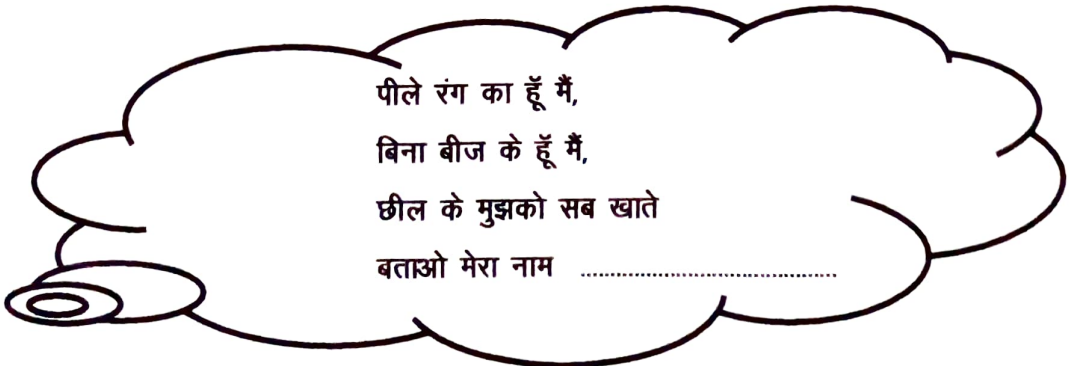 पीले रंग का हूॅं मैं,
बिना बीज के हूॅं मैं,
छील के मुझको सब खाते
बताओ मेरा नाम ........................................